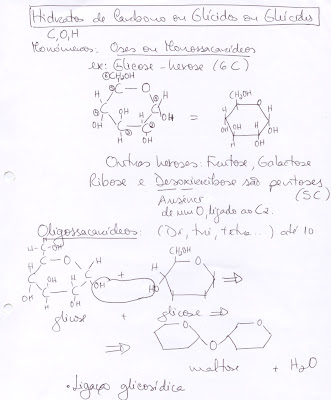 Hidratos de Carbono ou Glícidos ou Glúcidos
C,O,H
Monómeros: Oses ou Monossacarídeos
ex: Glicose - hexose (6C)
CH₂OH
C O
H OH
C C
OH
=
CH₂OH
O
H H
OH OH
Outras hexoses: Frutose, Galactose
Ribose e Desoxirribose são pentoses
(5C)
Ausência
de um O, ligado ao C2.
Oligossacarídeos: (Di, tri, tetra...) até 10
H-C-OH
CH₂OH
C O
+
O
H OH
⇒
glicose + glicose ⇒
⇒ O O O
maltose + H₂O
• Ligação glicosídica